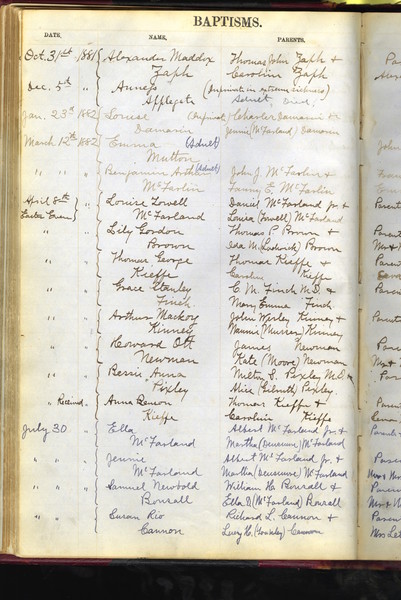 BAPTISMS.
DATE. NAME. PARENTS.
Oct. 31st 1881 Alexander Maddox Thomas John Zaph &
Zaph Carolin Zaph
Dec. 5th " (in private in extreme sickness)
Applegate Adult, Died
Jan. 23rd 1882 Louise (in private) Chester Damarin &
Damarin Jennie (McFarland) Damarin
March 12th 1882 Emma (Adult)
Mutton
" " Benjamin Arthur (Adult) John J. McFarlin &
McFarlin Fanny E. McFarlin
April 8th Louise Lowell Daniel McFarland Jr. &
Easter Even McFarland Louisa (Lowell) McFarland
" " Lily Gordon Thomas P. Brown &
Brown Ida M. Brown
" " Thomas George Thomas Kieffe &
Kieffe Carolin Kieffe
" " Grace Stanley C. M. Finch M.D. &
Finch Mary Emma Finch
" " Arthur Mackoy John Wesley Kinney &
Kinney Nannie (Murray) Kinney
" " Howard Ott James Newman
Newman Kate (Moore) Newman
" " Bessie Anna Milton S. Pixley M.D. &
Pixley Alice Pixley
" Received " Anna Kieffe Thomas Kieffe &
Carolin Kieffe
July 30 Ella Albert McFarland Jr. &
McFarland Martha McFarland
" " Jennie Albert McFarland Jr. &
McFarland Martha McFarland
" " Samuel Newbold William H. Bonsall &
Bonsall Ella D. (McFarland) Bonsall
" " Susan Rio Richard L. Cannon &
Cannon Lucy H. Cannon